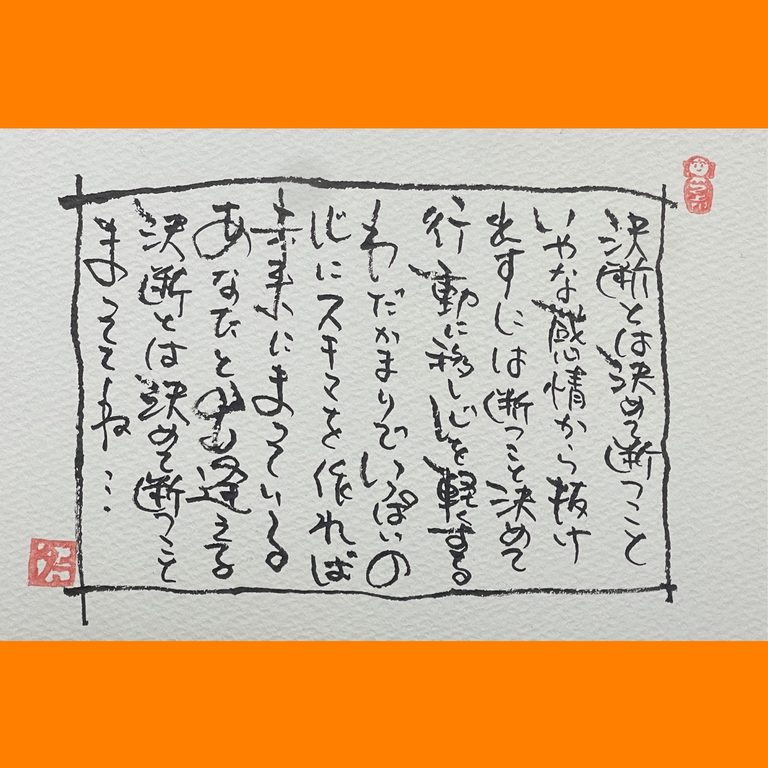 決断とは決めて断つこと
いやな感情から抜け
出すには断つこと決めて
行動に移し心を軽くする
わだかまりでいっぱいの
心にスキマを作れば
未来にまっている
あなたとも逢える
決断とは決めて断つこと
まっててね…